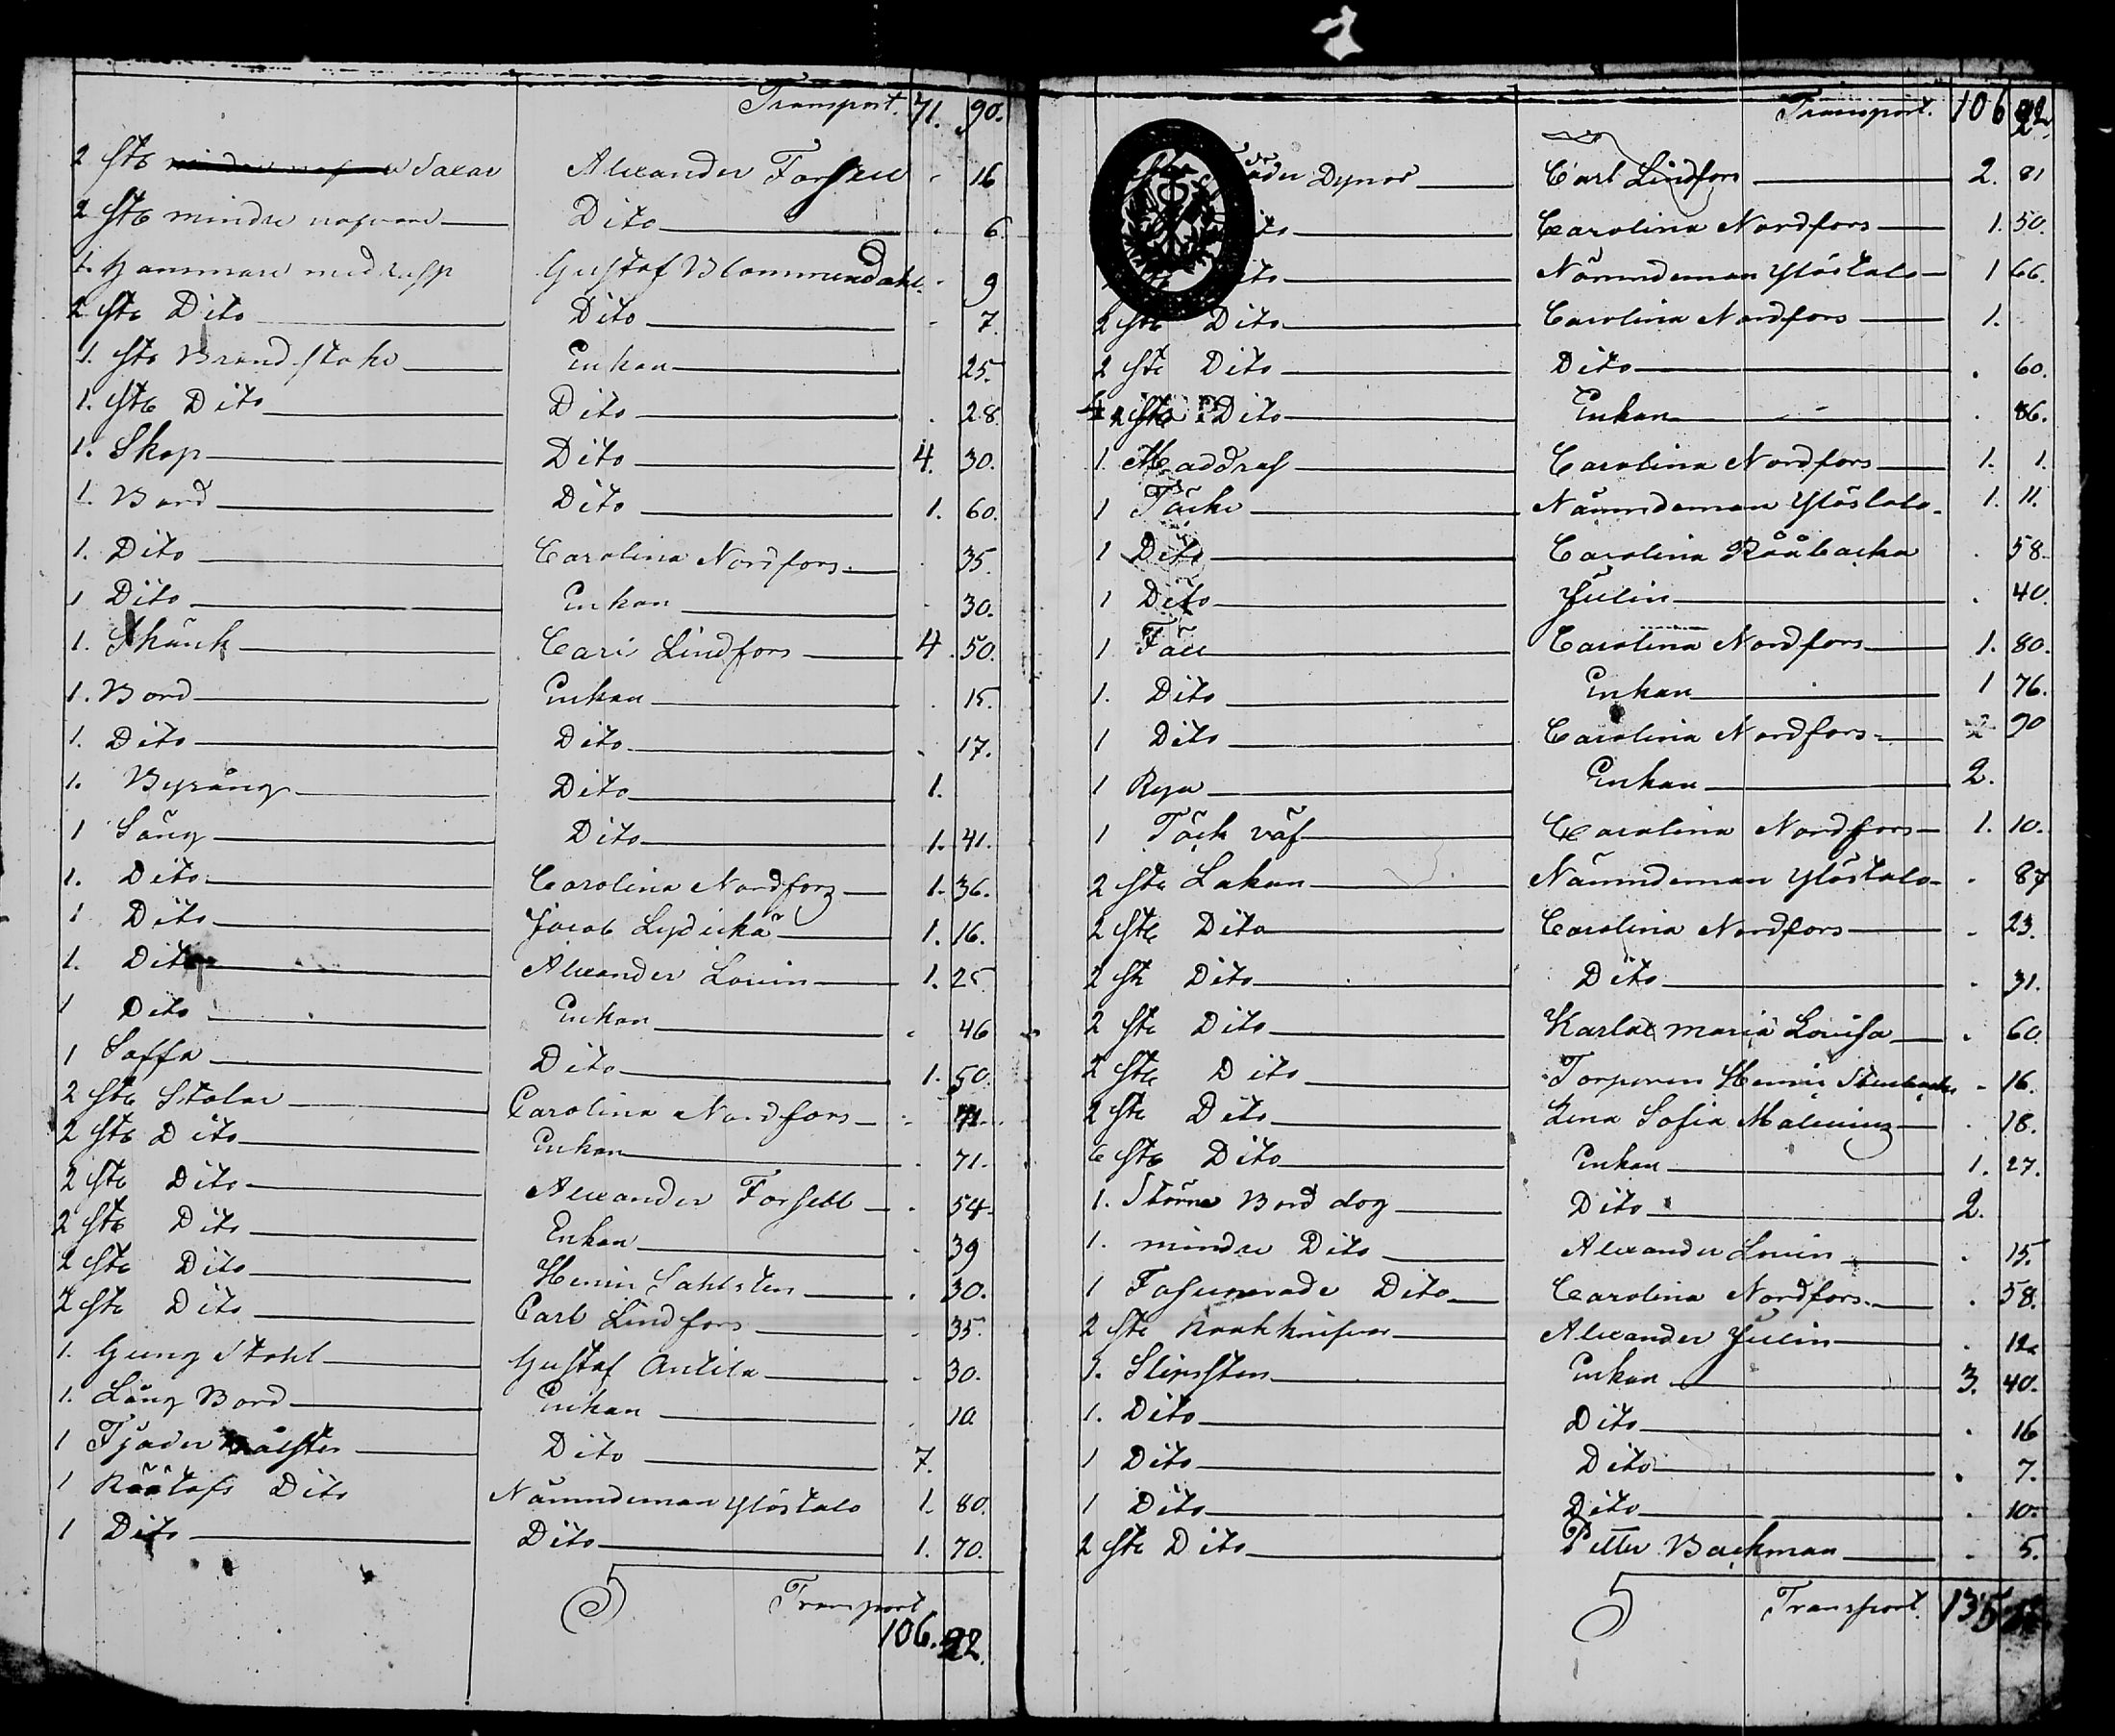 Transport. 71. 90.
2 st. Saxar Alexander Forsell . 16
2 st. mindre nafvare Dito . 6.
1. Hammare med rasp Gustaf Blommendahl . 9
2 st. Dito Dito . 7.
1. st. Brandstake Enkan 25.
1. st. Dito Dito . 28.
1. Skop Dito 4. 30.
1. Bord Dito 1. 60.
1. Dito Carolina Nordfors . 35.
1 Dito Enkan . 30.
1. Skänk Carl Lindfors 4. 50.
1. Bord Enkan . 15.
1. Dito Dito . 17.
1. Byrång Dito 1.
1 Säng Dito 1. 41.
1. Dito Carolina Nordfors 1. 36.
1 Dito Jacob Lydickä 1. 16.
1. Dito Alexander Lovin 1. 25.
1 Dito Enkan . 46
1 Soffa Dito 1. 50.
2 st. Stolar Carolina Nordfors .
2 st. Dito Enkan . 71.
2 st. Dito Alexander Forsell . 54.
2 st. Dito Enkan . 39
2 st. Dito Henrin Sahlsten . 30.
2 st. Dito Carl Lindfors . 35.
1. Gung Stohl Gustaf Antila . 30.
1. Lång Bord Enkan . 10.
1 Fjäder Dito 7.
1 Dito Nämndeman Ylöstalo 1. 80.
1 Dito Dito 1. 70.
Transport 106. 22.
Transport. 106 22.
Dynor Carl Lindfors 2. 81
Carolina Nordfors 1. 50.
Nämndeman Ylöstalo 1 66.
2 st. Dito Carolina Nordfors 1.
2 st. Dito Dito . 60.
st. Dito Enkan . 86.
1. Maddras Carolina Nordfors 1. 1.
1 Täcke Nämndeman Ylöstalo 1. 11.
1 Dito Carolina Rååbacka . 58.
1 Dito Julin . 40.
1 Fäll Carolina Nordfors 1. 80.
1. Dito Enkan 1 76.
1 Dito Carolina Nordfors 90
1 Rya Enkan 2.
1 Täck väf Carolina Nordfors 1. 10.
2 st. Lakan Nämndeman Ylöstalo . 87
2 st. Dito Carolina Nordfors . 23.
2 st. Dito Dito . 31.
2 st. Dito Karla maria Lovisa . 60.
2 st. Dito Torparen Henrin . 16.
2 st. Dito Lena Sofia Malening . 18.
6 st. Dito Enkan 1. 27.
1. Större Bord dog Dito 2.
1. mindre Dito Alexander Lovin . 15.
1 Fasunerade Dito Carolina Nordfors . 58.
2 st. Rakknifvar Alexander Julin . 12.
1. Slipsten Enkan 3. 40.
1. Dito Dito . 16
1 Dito Dito . 7.
1 Dito Dito . 10.
2 st. Dito Petter Backman . 5.
Transport. 135